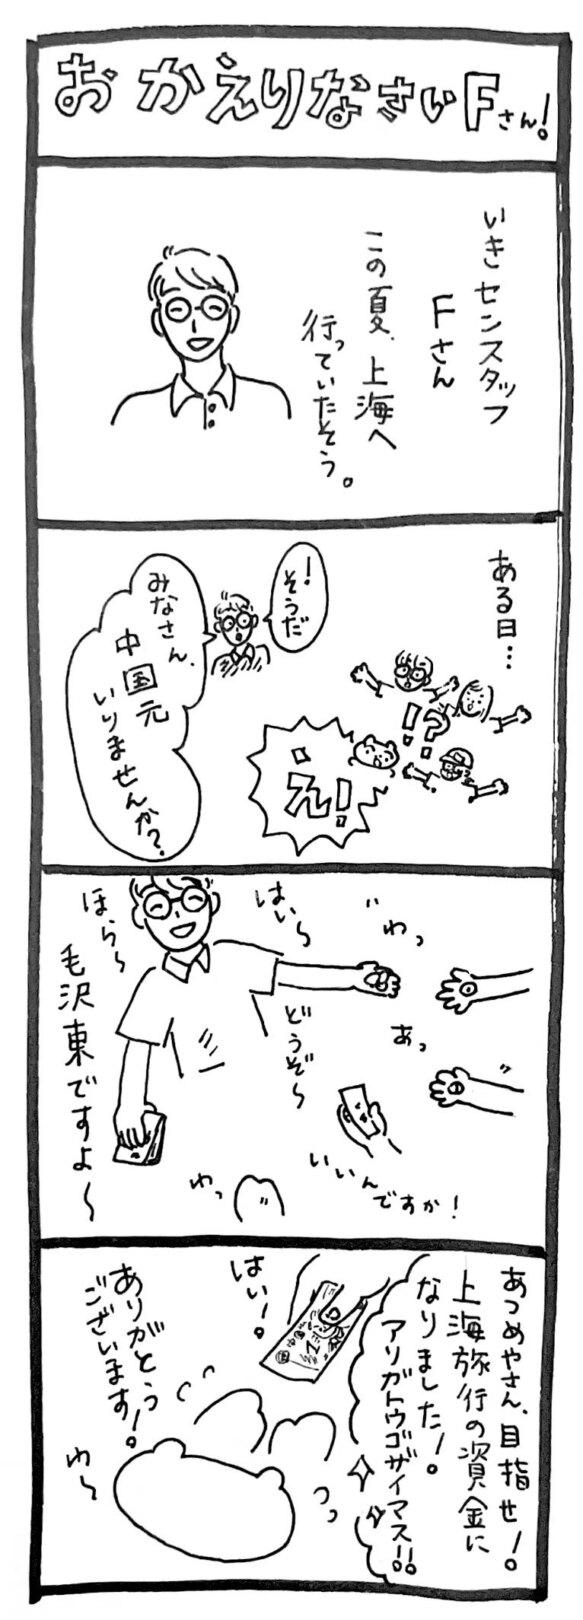 おかえりなさいFさん!
いきセンスタッフ
Fさん
この夏、上海へ
行っていたそう。
ある日…
!そうだ
みなさん、
中国元
いりませんか?
!?
え!
はい〜
ほら〜
毛沢東ですよ〜
どうぞ〜
わっ
あっ
いいんですか!
わっ
あつめやさん、目指せ!
上海旅行の資金に
なりました!
アリガトウゴザイマス!!
はい!
ありがとう
ございます!
わ〜